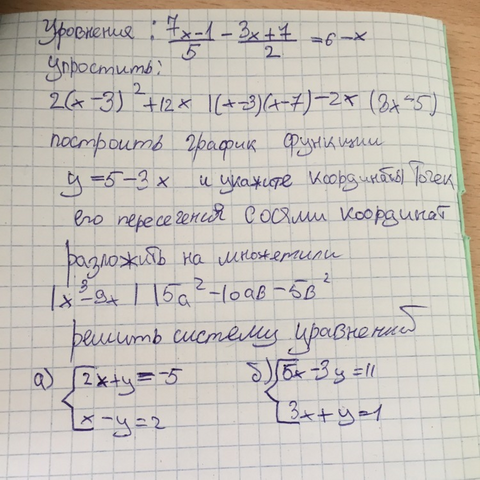 Уровнения : 7x-1/5 - 3x+7/2 = 6-x
Упростить:
2(x-3)² +12x |(x-3)(x-7)-2x (3x-5)
построить график функции
y=5-3x и укажите координаты точек
его пересегения с осями координат
разложить на множетили
|x³-9x | |5a²-10ab-5b²
решить систему уравнений
а) {2x+y=-5 б) {5x-3y=11
{x-y=2 {3x+y=1